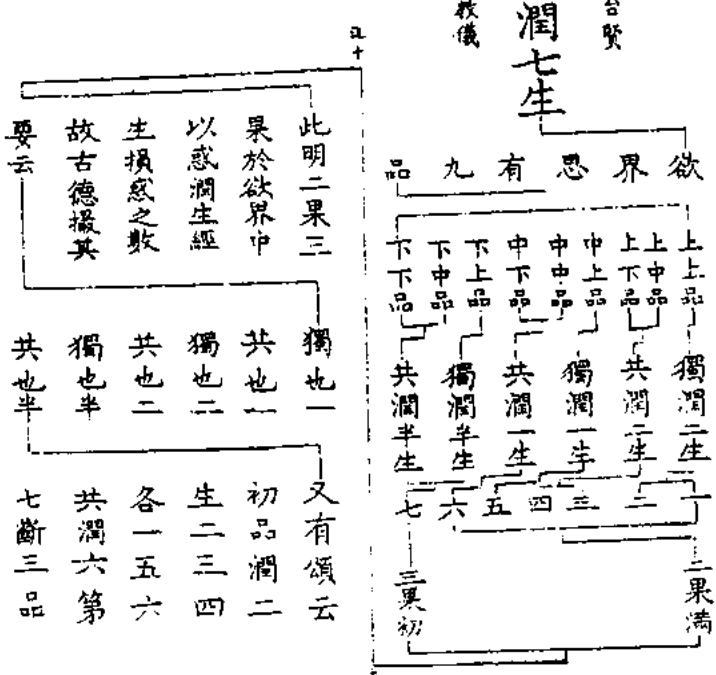 台賢
教儀
潤七生
欲界思有九品
上上品
上中品
上下品
中上品
中中品
中下品
下上品
下中品
下下品
獨潤二生
共潤二生
獨潤一生
共潤一生
獨潤半生
共潤半生
一
二
三
四
五
六
七
二果滿
三果初
此明二果三
果於欲界中
以惑潤生經
生損惑之數
故古德撮其
要云
獨也一
共也一
獨也二
共也二
獨也半
共也半
又有頌云
初品潤二
生二三四
各一五六
共潤六第
七斷三品